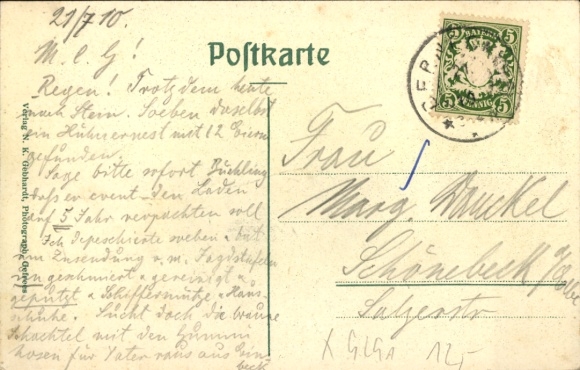 21/7 10.
M. l. G!
Postkarte
Regen! Trotzdem heute
nach Stern. Soeben daselbst
ein Hühnernest mit 12 Eiern
gefunden.
Sage bitte sofort Büchling
daß er event. den Laden
auf 5 Jahr verpachten soll
Ich depeschierte soeben u. bat
um Zusendung v. m. Jagdstiefeln
geschmiert u. gereinigt u.
geputzt u. Schiffermütze u. Haus-
schuhe. Sucht doch die braune
Schachtel mit den Gummi
hosen für Vater raus aus Ein-
beck
Verlag N. K. Gebhardt, Photograph, Gefrees
BAYERN
5 5
5 PFENNIG 5
Frau
Marg. Druckel
Schönebeck a/Elbe
Salzerstr
X GLGA 12,-